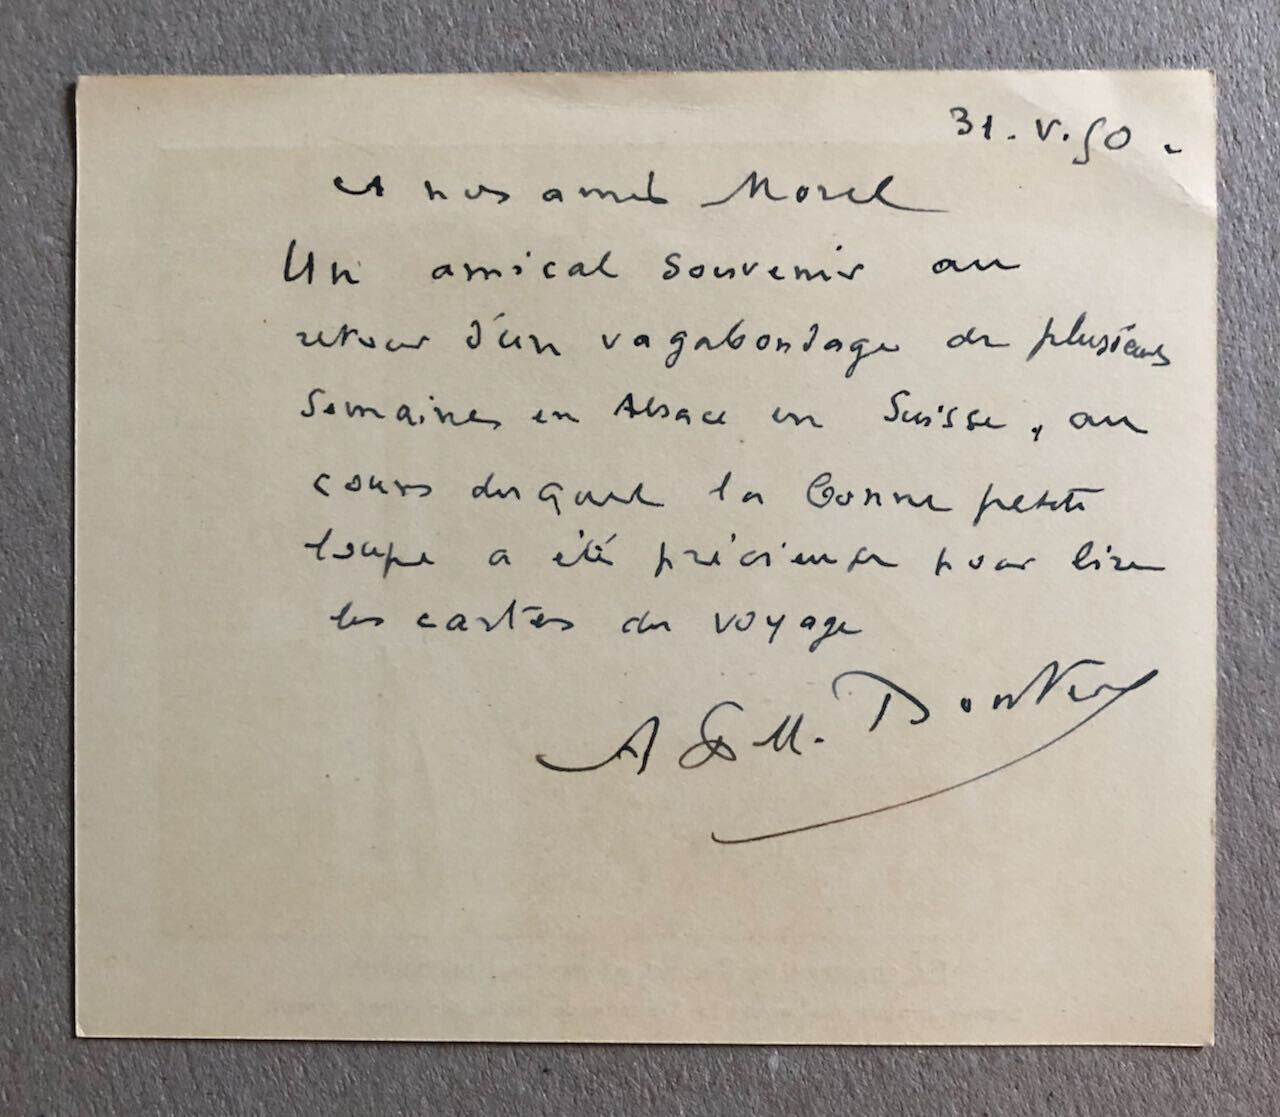 31. V. 50.
A nos amis Morel
Un amical souvenir au
retour d'un vagabondage de plusieurs
semaines en Alsace en Suisse, au
cours duquel la bonne petite
loupe a été précieuse pour lire
les cartes du voyage
A & M.